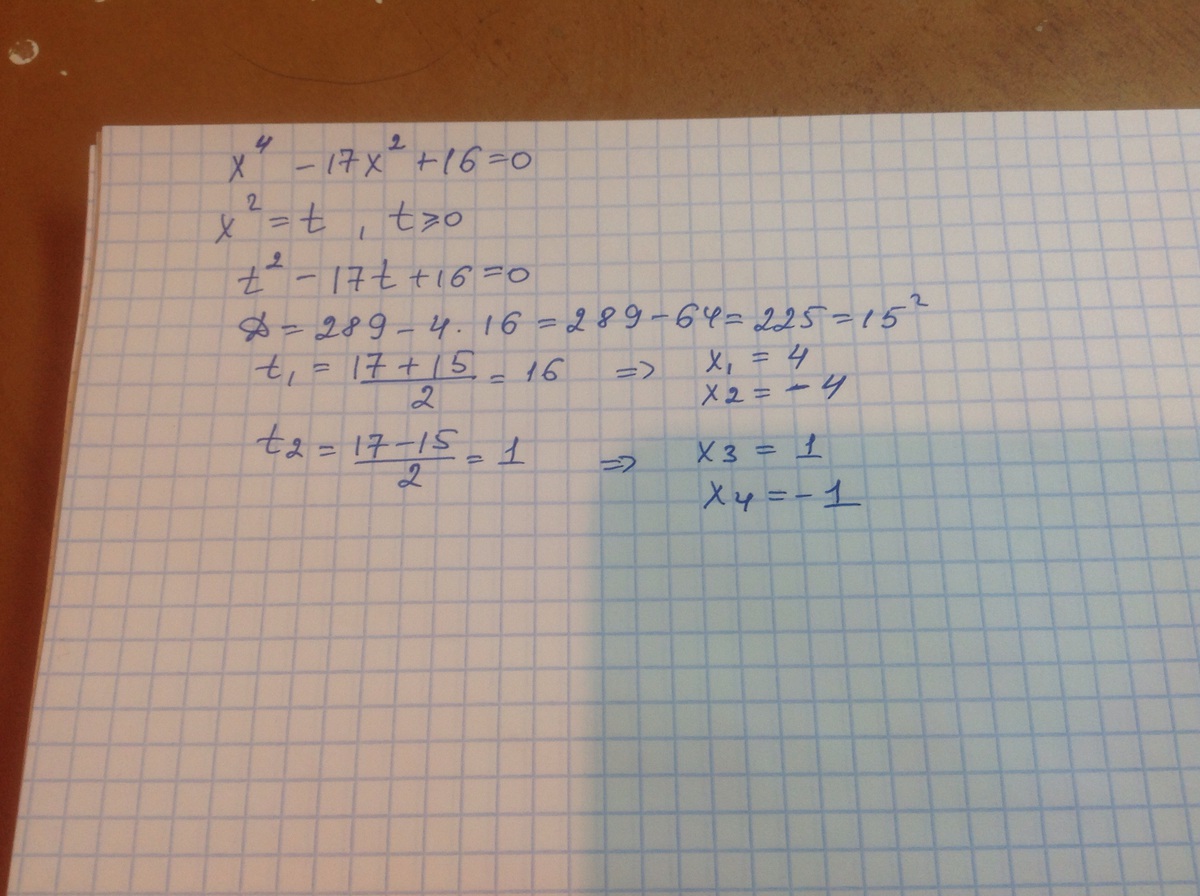 x⁴ - 17x² + 16 = 0
x² = t , t ≥ 0
t² - 17t + 16 = 0
D = 289 - 4 · 16 = 289 - 64 = 225 = 15²
t₁ = (17 + 15)/2 = 16 => x₁ = 4
x₂ = - 4
t₂ = (17 - 15)/2 = 1 => x₃ = 1
x₄ = - 1